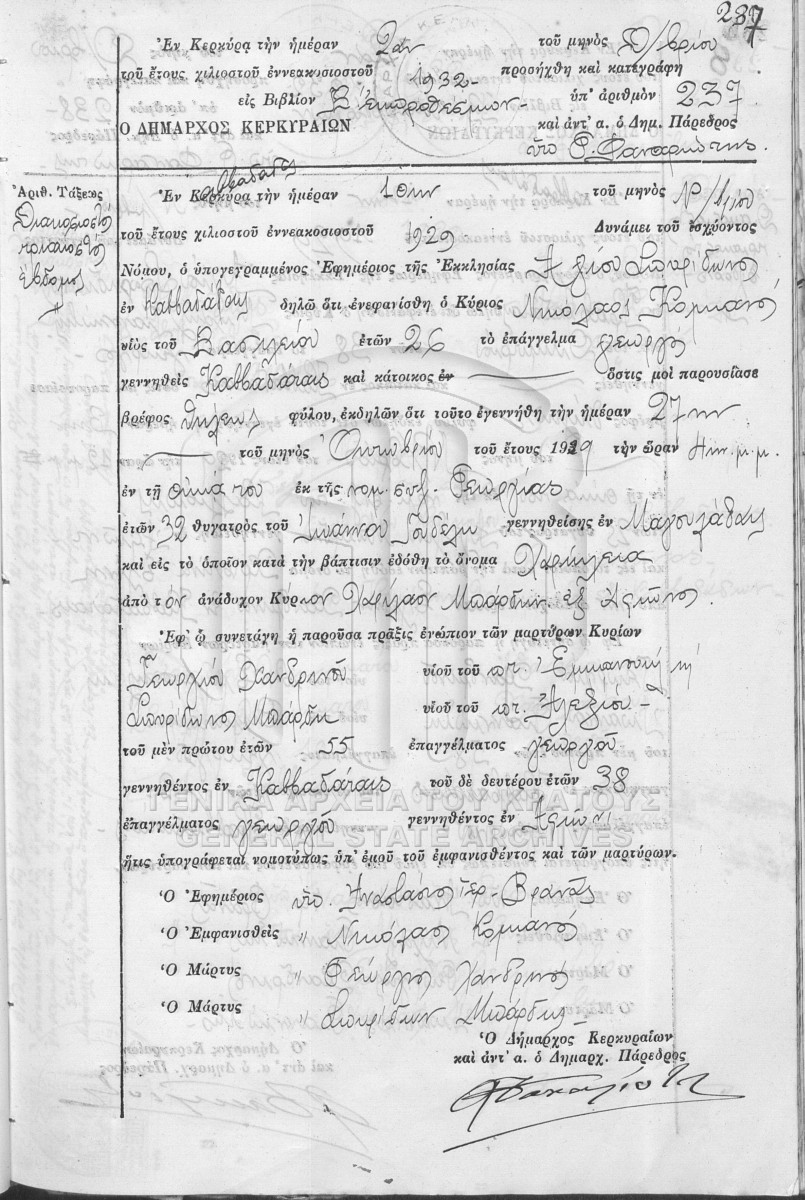 237
Ἐν Κερκύρᾳ τὴν ἡμέραν 2αν τοῦ μηνὸς Δ/βρίου
τοῦ ἔτους χιλιοστοῦ ἐννεακοσιοστοῦ 1932 προσήχθη καὶ κατεγράφη
εἰς Βιβλίον Β ἐκπροθέσμων ὑπ' ἀριθμὸν 237
Ο ΔΗΜΑΡΧΟΣ ΚΕΡΚΥΡΑΙΩΝ καὶ ἀντ' α. ὁ Δημ. Πάρεδρος
Ἀριθ. Τάξεως
Διακοσιοστὴ
τριακοστὴ
ἑβδόμη
Καββαδάτες
Ἐν Κερκύρᾳ τὴν ἡμέραν 10ην τοῦ μηνὸς
τοῦ ἔτους χιλιοστοῦ ἐννεακοσιοστοῦ 1929 Δυνάμει τοῦ ἰσχύοντος
Νόμου, ὁ ὑπογεγραμμένος Ἐφημέριος τῆς Ἐκκλησίας Ἁγίου Σπυρίδωνος
ἐν Καββαδάταις δηλῶ ὅτι ἐνεφανίσθη ὁ Κύριος Νικόλαος Κομιανός
υἱὸς τοῦ Βασιλείου ἐτῶν 26 τὸ ἐπάγγελμα γεωργός
γεννηθεὶς Καββαδάταις καὶ κάτοικος ἐν ὅστις μοὶ παρουσίασε
βρέφος θήλεως φύλου, ἐκδηλῶν ὅτι τοῦτο ἐγεννήθη τὴν ἡμέραν 27ην
τοῦ μηνὸς Ὀκτωβρίου τοῦ ἔτους 1929 τὴν ὥραν μ.μ.
ἐν τῇ οἰκίᾳ του ἐκ τῆς νομ. συζ. Γεωργίας
ἐτῶν 32 θυγατρὸς τοῦ Ἰωάννου Γουδέλη γεννηθείσης ἐν Μαγουλάδαις
καὶ εἰς τὸ ὁποῖον κατὰ τὴν βάπτισιν ἐδόθη τὸ ὄνομα Χαρίκλεια
ἀπὸ τὸν ἀνάδοχον Κύριον Χαρίλαον Μπάρδην ἐξ
Ἐφ' ᾧ συνετάγη ἡ παροῦσα πρᾶξις ἐνώπιον τῶν μαρτύρων Κυρίων
Γεωργίου Χανδρινοῦ υἱοῦ τοῦ ποτ. Ἐμμανουήλ
Σπυρίδωνος Μπάρδη υἱοῦ τοῦ ποτ. Ἀλεξίου
τοῦ μὲν πρώτου ἐτῶν 55 ἐπαγγέλματος γεωργοῦ
γεννηθέντος ἐν Καββαδάταις τοῦ δὲ δευτέρου ἐτῶν 38
ΓΕΝΙΚΑ ΑΡΧΕΙΑ ΤΟΥ ΚΡΑΤΟΥΣ
ἐπαγγέλματος γεωργοῦ γεννηθέντος ἐν
GENERAL STATE ARCHIVES
ἥτις ὑπογράφεται νομοτύπως ὑπ' ἐμοῦ τοῦ ἐμφανισθέντος καὶ τῶν μαρτύρων.
Ὁ Ἐφημέριος Ἀναστάσιος Ἱερ. Βρανᾶς
Ὁ Ἐμφανισθεὶς " Νικόλαος Κομιανός
Ὁ Μάρτυς " Γεώργιος Χανδρινός
Ὁ Μάρτυς " Σπυρίδων Μπάρδης
Ὁ Δήμαρχος Κερκυραίων
καὶ ἀντ' α. ὁ Δημαρχ. Πάρεδρος